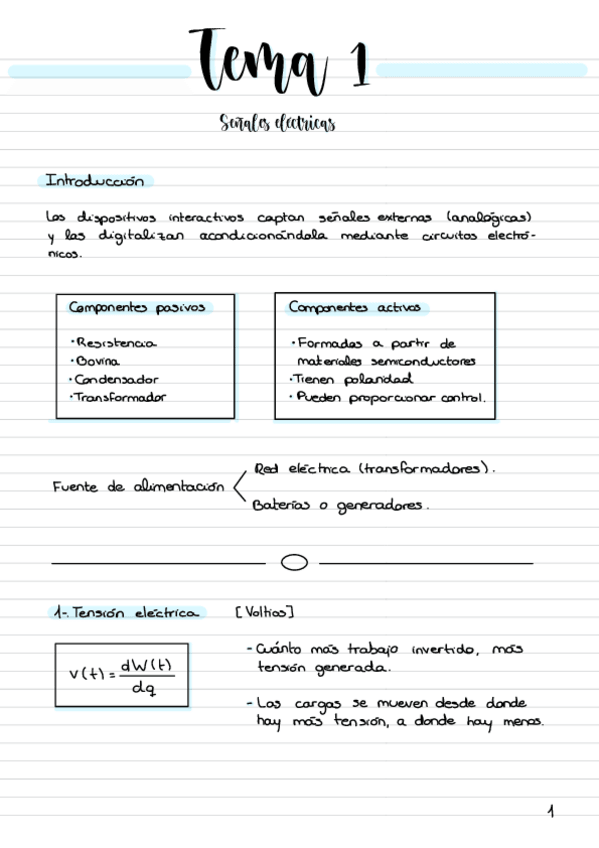 Tema 1
Señales eléctricas
Introducción
Los dispositivos interactivos captan señales externas (analógicas)
y las digitalizan acondicionándola mediante circuitos electró-
nicos.
Componentes pasivos
· Resistencia
· Bovina
· Condensador
· Transformador
Componentes activos
· Formadas a partir de
materiales semiconductores
· Tienen polaridad
· Pueden proporcionar control.
Fuente de alimentación
Red eléctrica (transformadores).
Baterías o generadores.
1-. Tensión eléctrica [Voltios]
v(t) = dW(t)
dq
- Cuánto más trabajo invertido, más
tensión generada.
- Las cargas se mueven desde donde
hay más tensión, a donde hay menos.
1